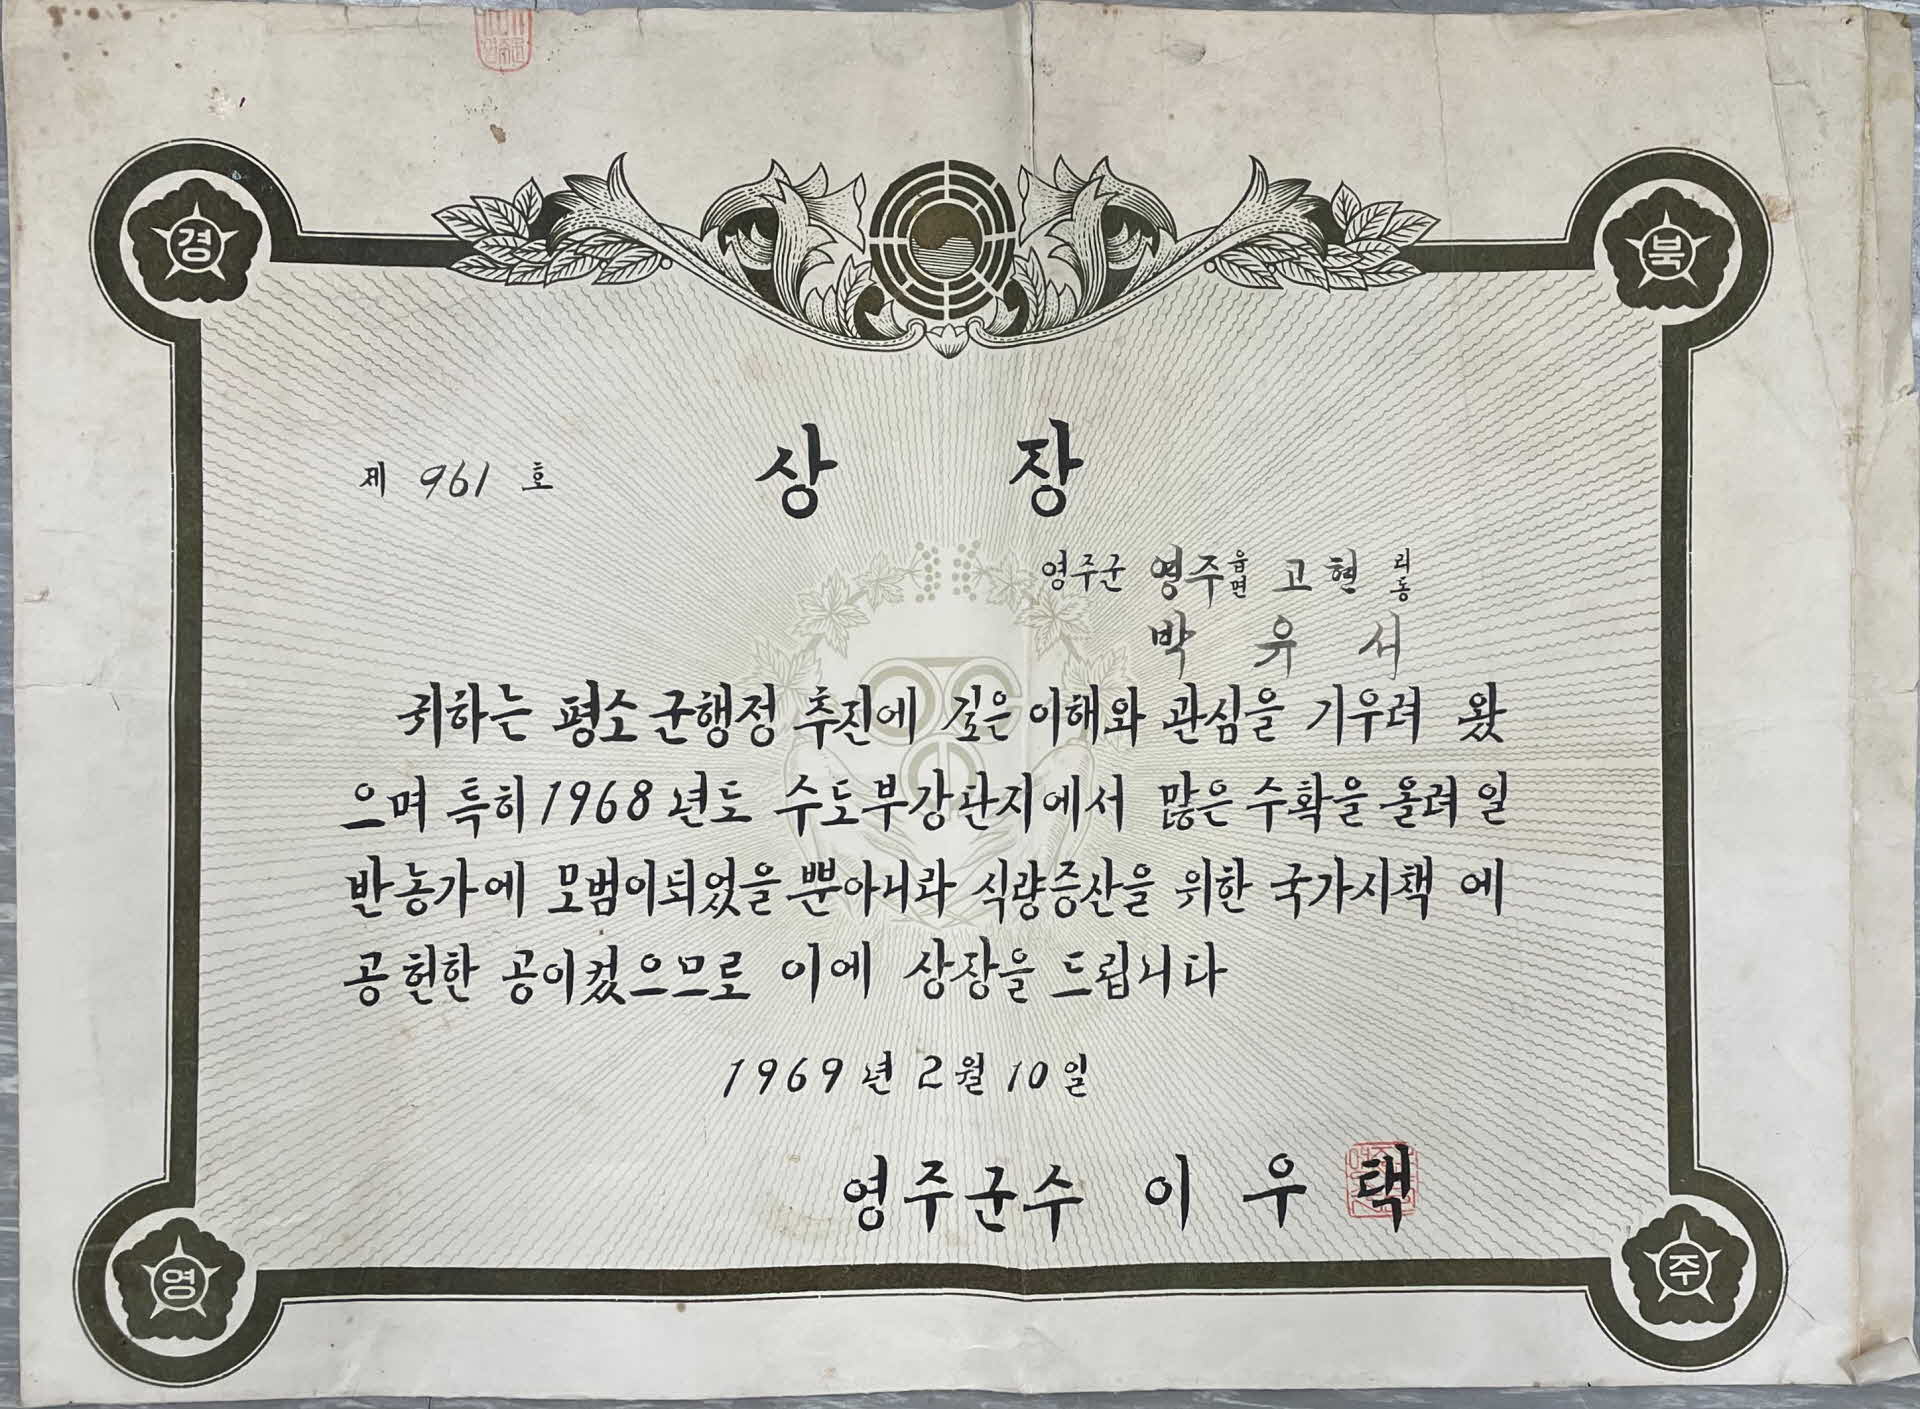 경 북
제 961 호 상 장
영주군 영주읍면 고현 리동
박 유 서
귀하는 평소 군행정 추진에 깊은 이해와 관심을 기우려 왔
으며 특히 1968년도 수도부강단지에서 많은 수확을 올려 일
반농가에 모범이되었을 뿐아니라 식량증산을 위한 국가시책에
공헌한 공이컸으므로 이에 상장을 드립니다
1969년 2월 10일
영주군수 이 우 택
영 주